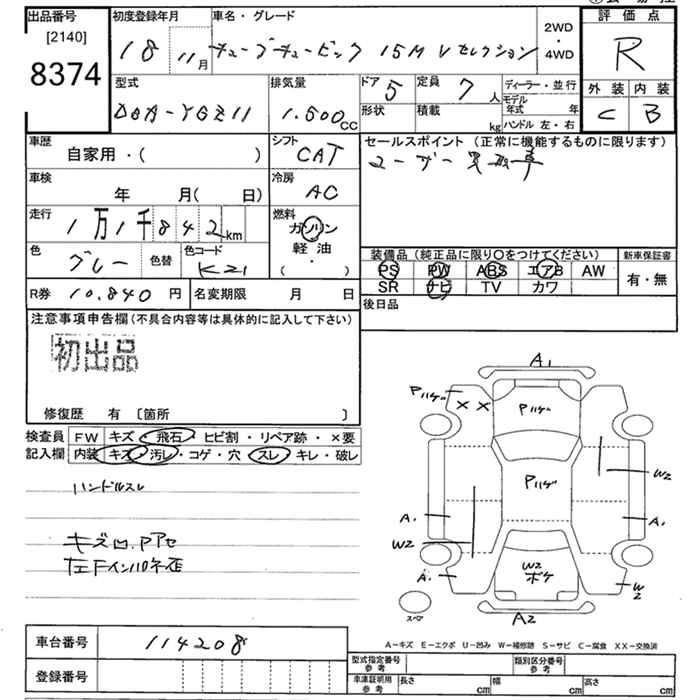 出品番号
[2140]
8374
初度登録年月
18 11月
車名・グレード
キューブキュービック 15M Vセレクション
2WD
・
4WD
評価点
R
外装 内装
C B
型式
DBA-YGZ11
排気量
1.500CC
ドア 5
形状
定員 7人
積載 kg
ディーラー・並行
モデル年式 年
ハンドル 左・右
車歴
自家用・( )
シフト
CAT
セールスポイント(正常に機能するものに限ります)
ユーザー買取車
車検
年 月( 日)
冷房
AC
走行
1万1千842km
燃料
ガソリン
軽油
・
( )
色
グレー
色替
色コード
K21
装備品(純正品に限り〇をつけてください)
PS PW ABS エアB AW
SR ナビ TV カワ
新車保証書
有・無
R券 10.840円
名変期限 月 日
後日品
注意事項申告欄(不具合内容等は具体的に記入して下さい)
初出品
修復歴 有 〔箇所 〕
検査員
記入欄
FW キズ・飛石・ヒビ割・リペア跡・×要
内装 キズ・汚レ・コゲ・穴・スレ・キレ・破レ
ハンドルスレ
キズ凹.Pアセ
A1
Pハゲ
XX
Pハゲ
Pハゲ
W2
A.
A.
W2
A.
W2
ボケ
W2
スペア
A2
A-キズ E-エクボ U-凹み W-補修跡 S-サビ C-腐食 XX-交換済
車台番号 114208
登録番号
型式指定番号
参考
類別区分番号
参考
車庫証明用
参考
長さ cm 幅 cm 高さ cm